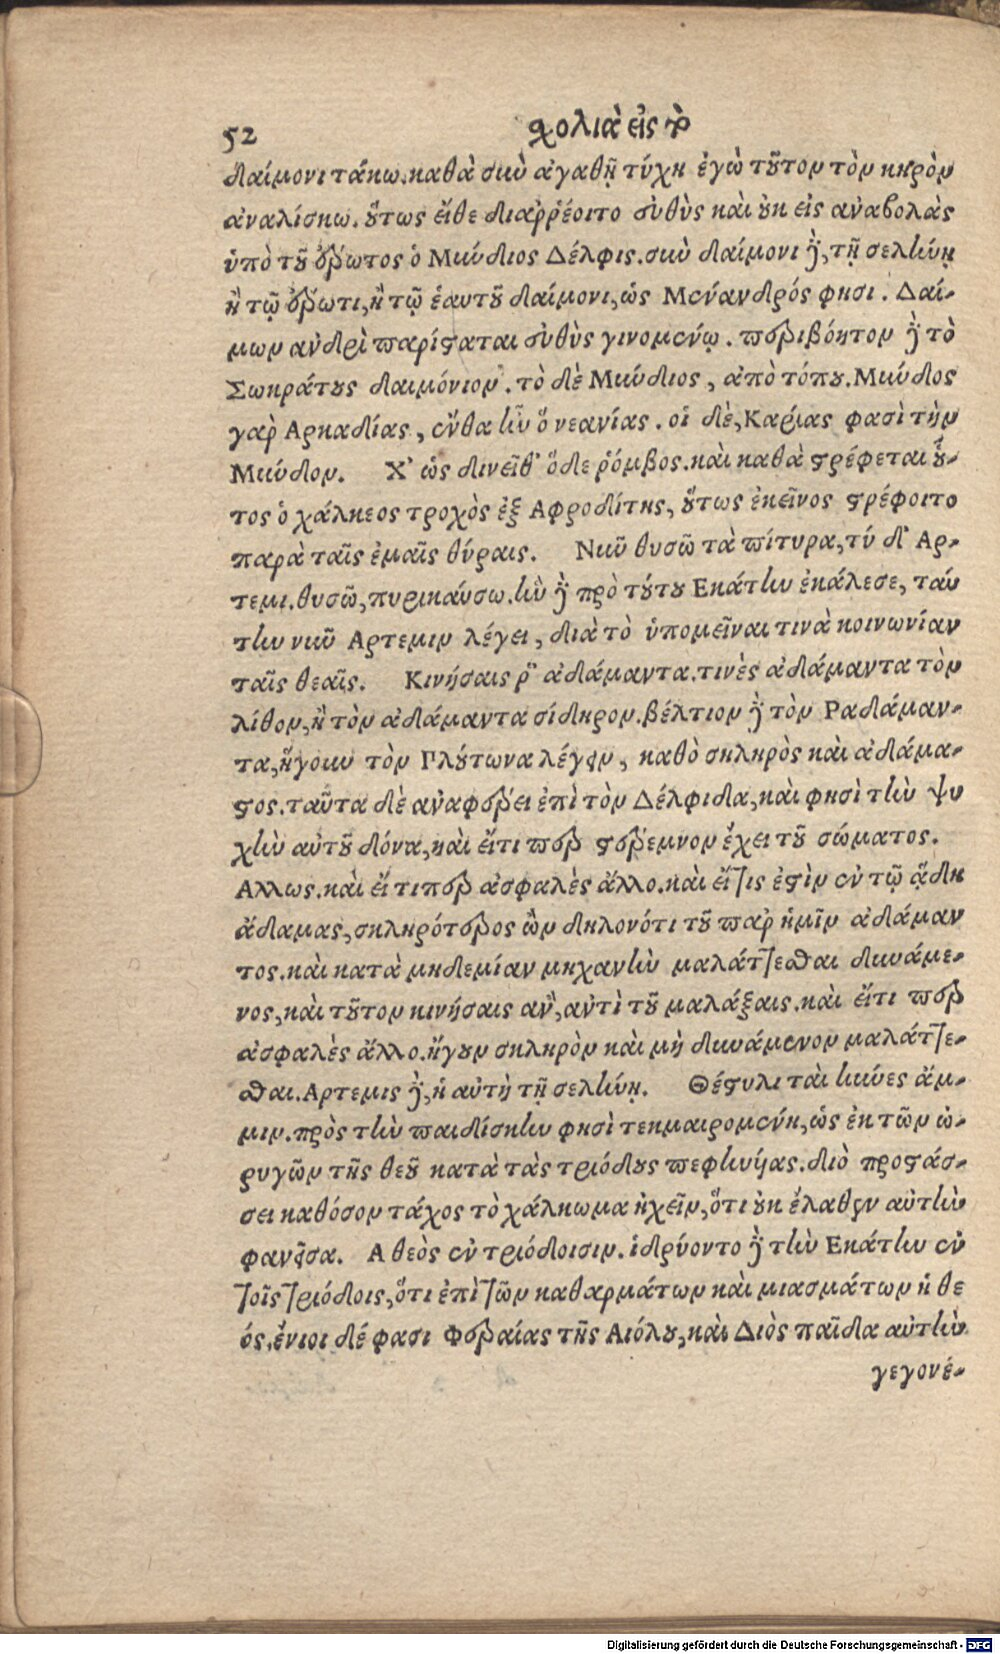 52 σχολιὰ εἰς τὸ
δαίμονι τάκω. καθὰ σὺν ἀγαθῇ τύχῃ ἐγὼ τοῦτον τὸν κηρὸν
ἀναλίσκω. οὕτως εἴθε διαῤῥέοιτο εὐθὺς καὶ οὐκ εἰς ἀναβολὰς
ὑπὸ τοῦ ἔρωτος ὁ Μύνδιος Δέλφις. σὺν δαίμονι δὲ, τῇ σελήνῃ
ἢ τῷ ἔρωτι, ἢ τῷ ἑαυτοῦ δαίμονι, ὡς Μένανδρός φησι. Δαί-
μων ἀνδρὶ παρίσταται εὐθὺς γινομένῳ. περιβόητον δὲ τὸ
Σωκράτους δαιμόνιον. τὸ δὲ Μύνδιος, ἀπὸ τόπου. Μύνδος
γαρ Αρκαδίας, ἔνθα ἦν ὁ νεανίας. οἱ δὲ, Καρίας φασὶ τὴν
Μύνδον. Χ' ὡς δινεῖθ' ὅδε ῥόμβος. καὶ καθὰ στρέφεται οὗ-
τος ὁ χάλκεος τροχὸς ἐξ Αφροδίτης, οὕτως ἐκεῖνος στρέφοιτο
παρὰ ταῖς ἐμαῖς θύραις. Νῦν θυσῶ τὰ πίτυρα, τύ δ' Αρ-
τεμι. θυσῶ, πυρικαύσω. ἣν δὲ πρὸ τούτου Εκάτην ἐκάλεσε, ταύ
την νῦν Αρτεμιν λέγει, διὰ τὸ ὑπομεῖναι τινὰ κοινωνίαν
ταῖς θεαῖς. Κινήσαις ῥ' ἀδάμαντα. τινὲς ἀδάμαντα τὸν
λίθον, ἢ τὸν ἀδάμαντα σίδηρον. βέλτιον δὲ τὸν Ραδάμαν-
τα, ἤγουν τὸν Πλούτωνα λέγειν, καθὸ σκληρὸς καὶ ἀδάμα-
στος. ταῦτα δὲ ἀναφέρει ἐπὶ τὸν Δέλφιδα, καὶ φησὶ τὴν ψυ
χὴν αὐτοῦ δόνα, καὶ εἴτι περ στέρεμνον ἔχει τοῦ σώματος.
Αλλως. καὶ εἴ τιπερ ἀσφαλὲς ἄλλο. καὶ εἴτις ἐστὶν ἐν τῷ ᾅδη
ἄδαμας, σκληρότερος ὢν δηλονότι τοῦ παρ' ἡμῖν ἀδάμαν
τος. καὶ κατὰ μηδεμίαν μηχανὴν μαλάττεσθαι δυνάμε-
νος, καὶ τοῦτον κινήσαις ἂν, ἀντὶ τοῦ μαλάξαις. καὶ εἴτι περ
ἀσφαλὲς ἄλλο. ἤγουν σκληρὸν καὶ μὴ δυνάμενον μαλάττε-
σθαι. Αρτεμις δὲ, ἡ αὐτὴ τῇ σελήνῃ. Θέστυλι ταὶ κύνες ἄμ-
μιν. πρὸς τὴν παιδίσκην φησὶ τεκμαιρομένη, ὡς ἐκ τῶν ὠ-
ρυγῶν τῆς θεοῦ κατὰ τὰς τριόδους πεφηνυίας. διὸ προστάσ-
σει καθόσον τάχος τὸ χάλκωμα ἠχεῖν, ὅτι οὐκ ἔλαθεν αὐτὴν
φανεῖσα. Α θεὸς ἐν τριόδοισιν. ἱδρύοντο δὲ τὴν Εκάτην ἐν
τοῖς τριόδοις, ὅτι ἐπὶ τῶν καθαρμάτων καὶ μιασμάτων ἡ θε
ός. ἔνιοι δέ φασι Φεραίας τῆς Αιόλου, καὶ Διὸς παῖδα αὐτὴν
γεγονέ-
Digitalisierung gefördert durch die Deutsche Forschungsgemeinschaft - DFG